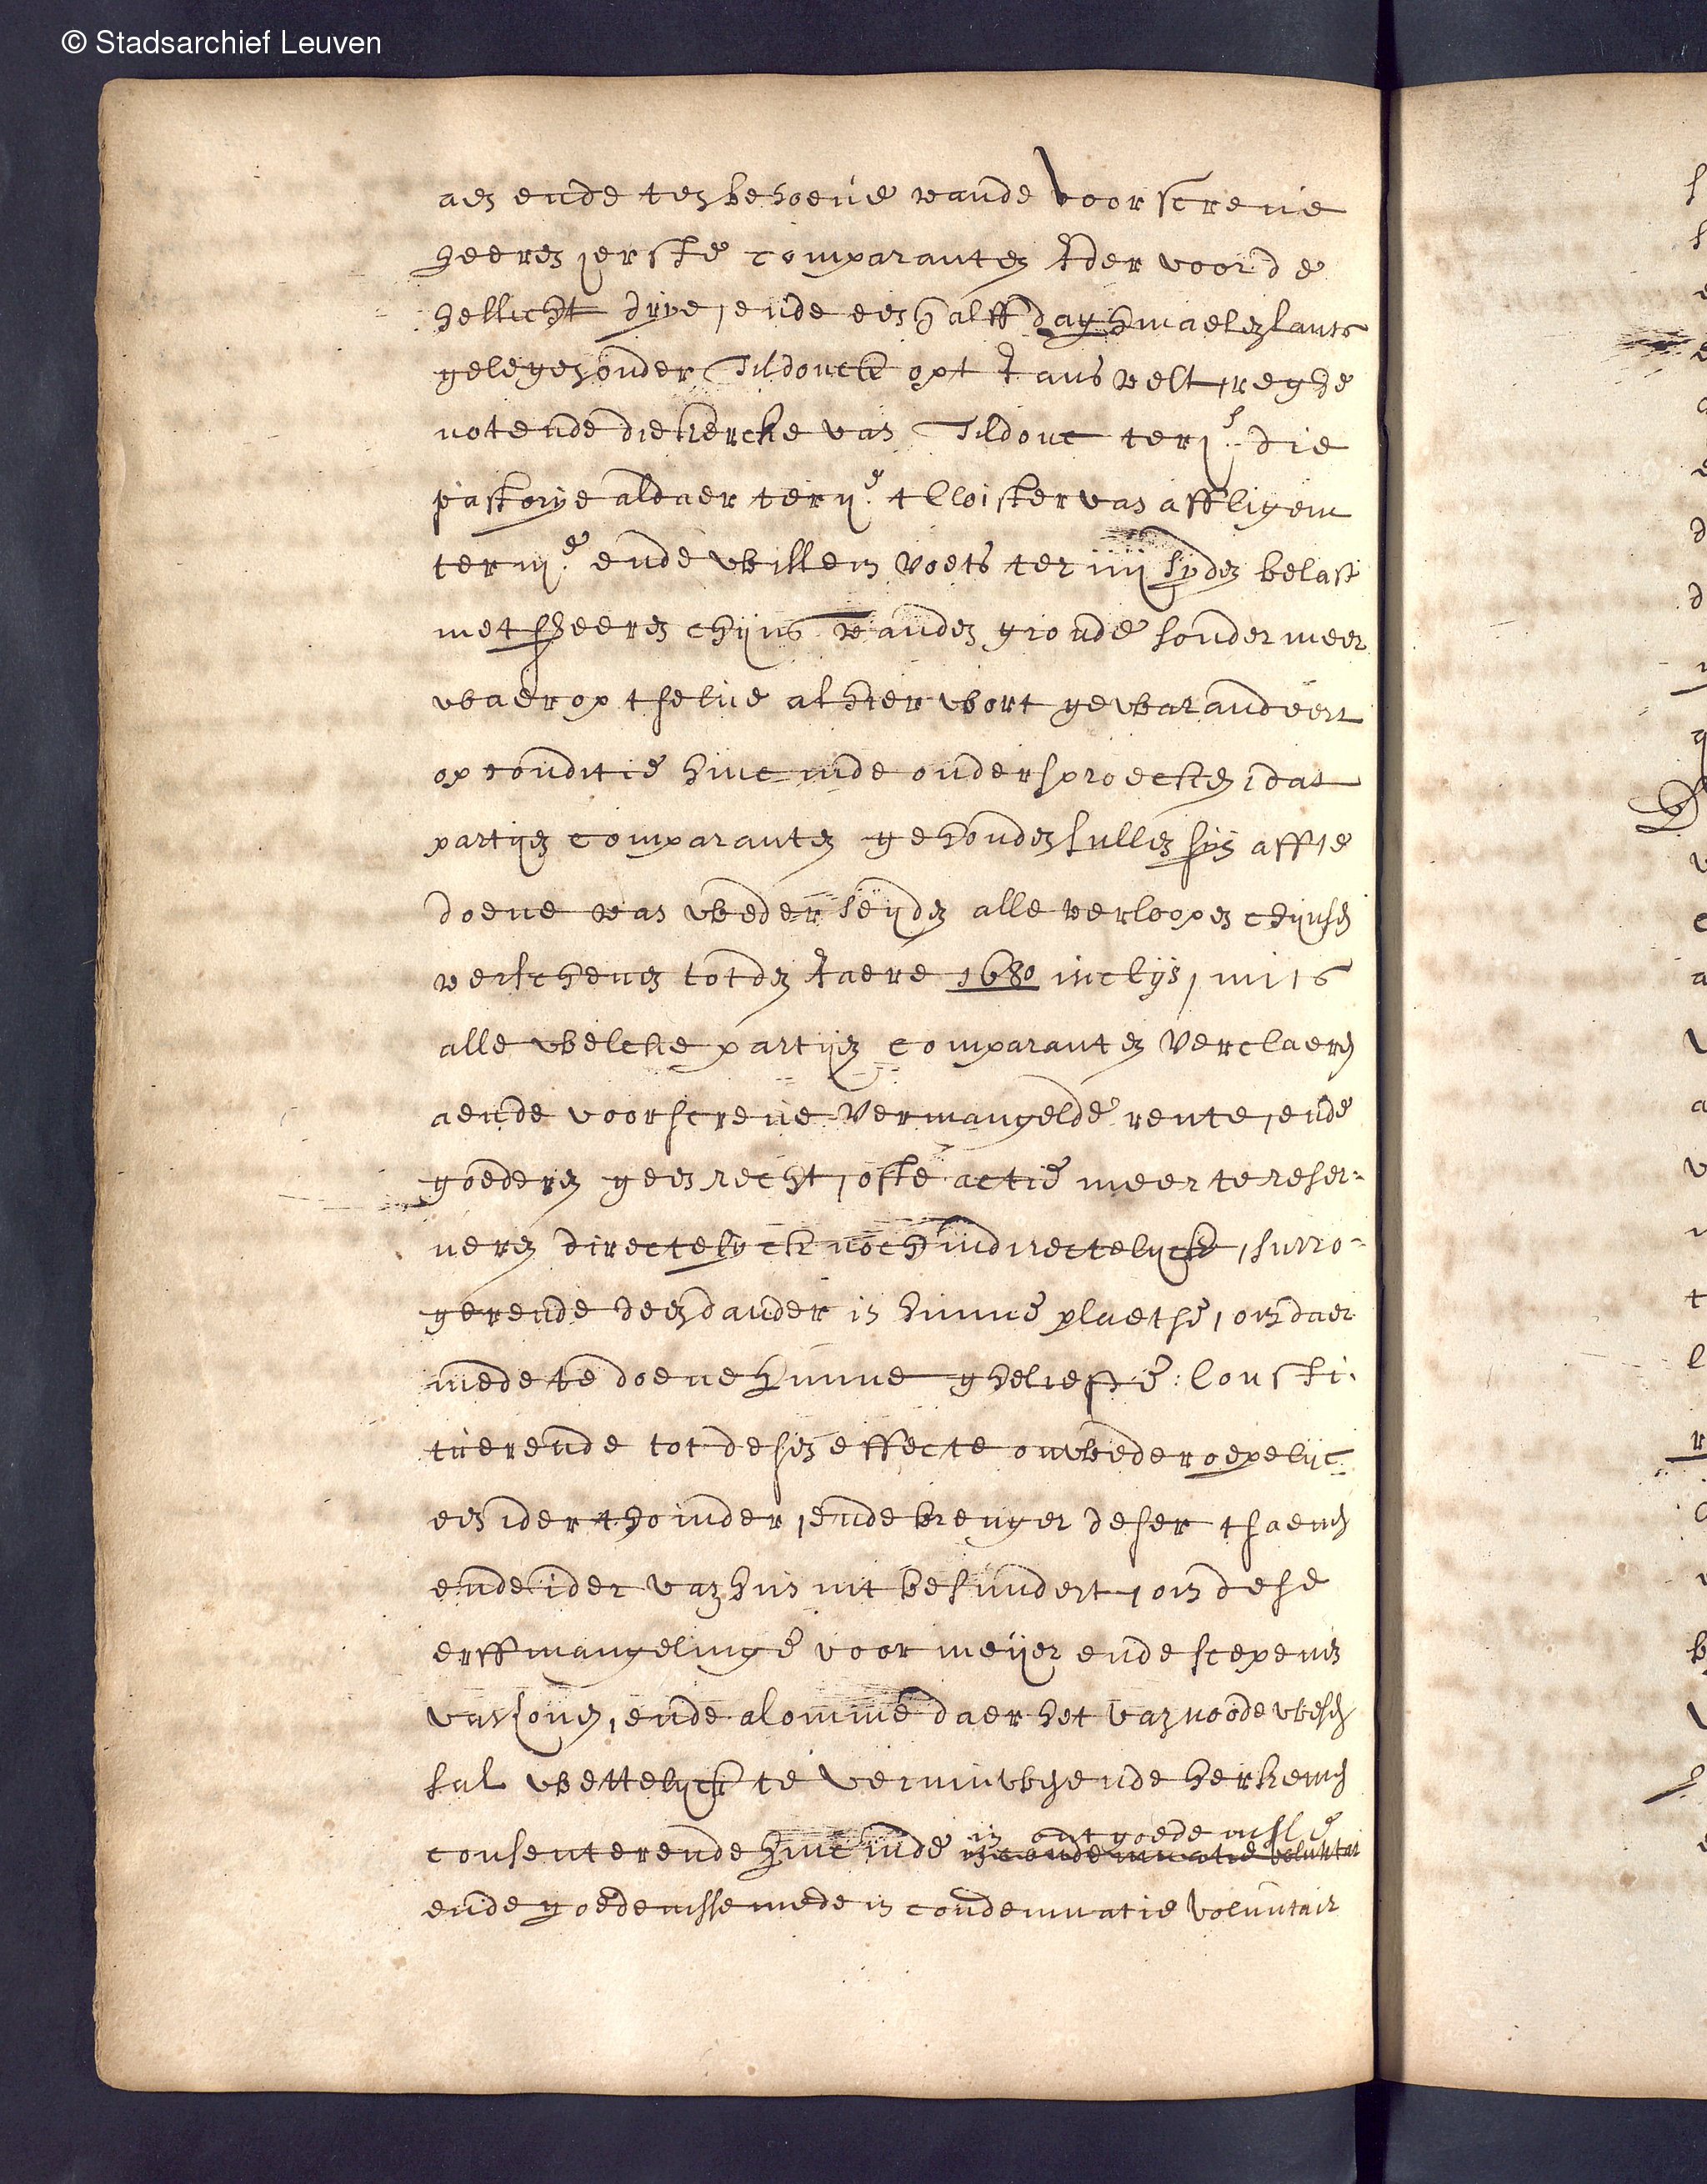 © Stadsarchief Leuven
aen ende ten behoeve vande voorscreve
heeren ierste comparanten Ider voor de
hellicht drye, ende een halff daghmaelen lants
gelegen onder Tildonck opt Jans velt, reghe
notende die kercke van Tildonc ter i.e die
pastorye aldaer ter ii.e tCloister van affligem
ter iii.e ende Willem voets ter iiii syden belast
met sheeren chijns vanden gronde sonder meer
waer op tselve alhier wort gewarandeert
op conditie hinc inde ondersproecken, dat
partijen comparanten gehouden sullen syn aff te
doene van weder seyden alle verloopen chijnsen
verschenen totden Jaere 1680 inclys, mits
alle welcke partijen comparanten verclaeren
aende voorscreve vermangelde rente, ende
goederen geen recht, ofte actie meer te reser-
veren directelyck noch indirectelyck, surro-
gerende deen dander in hunne plaetse, om daer
mede te doene hunne ghelieffte: Consti.
tuerende tot desen effecte onwederoepelijc
een ider thoinder, ende brenger deser tsaemen
ende ider van hun int besundert, om dese
erffmangelinge voor meijer ende scepenen
van Loven, ende alomme daer het van noode wesen
sal wettelyck te vernuwen ende herkennen
in ontgoedenisse
consenterende hinc inde in condemnatie voluntair
ende goedenisse mede in condemnatie voluntair